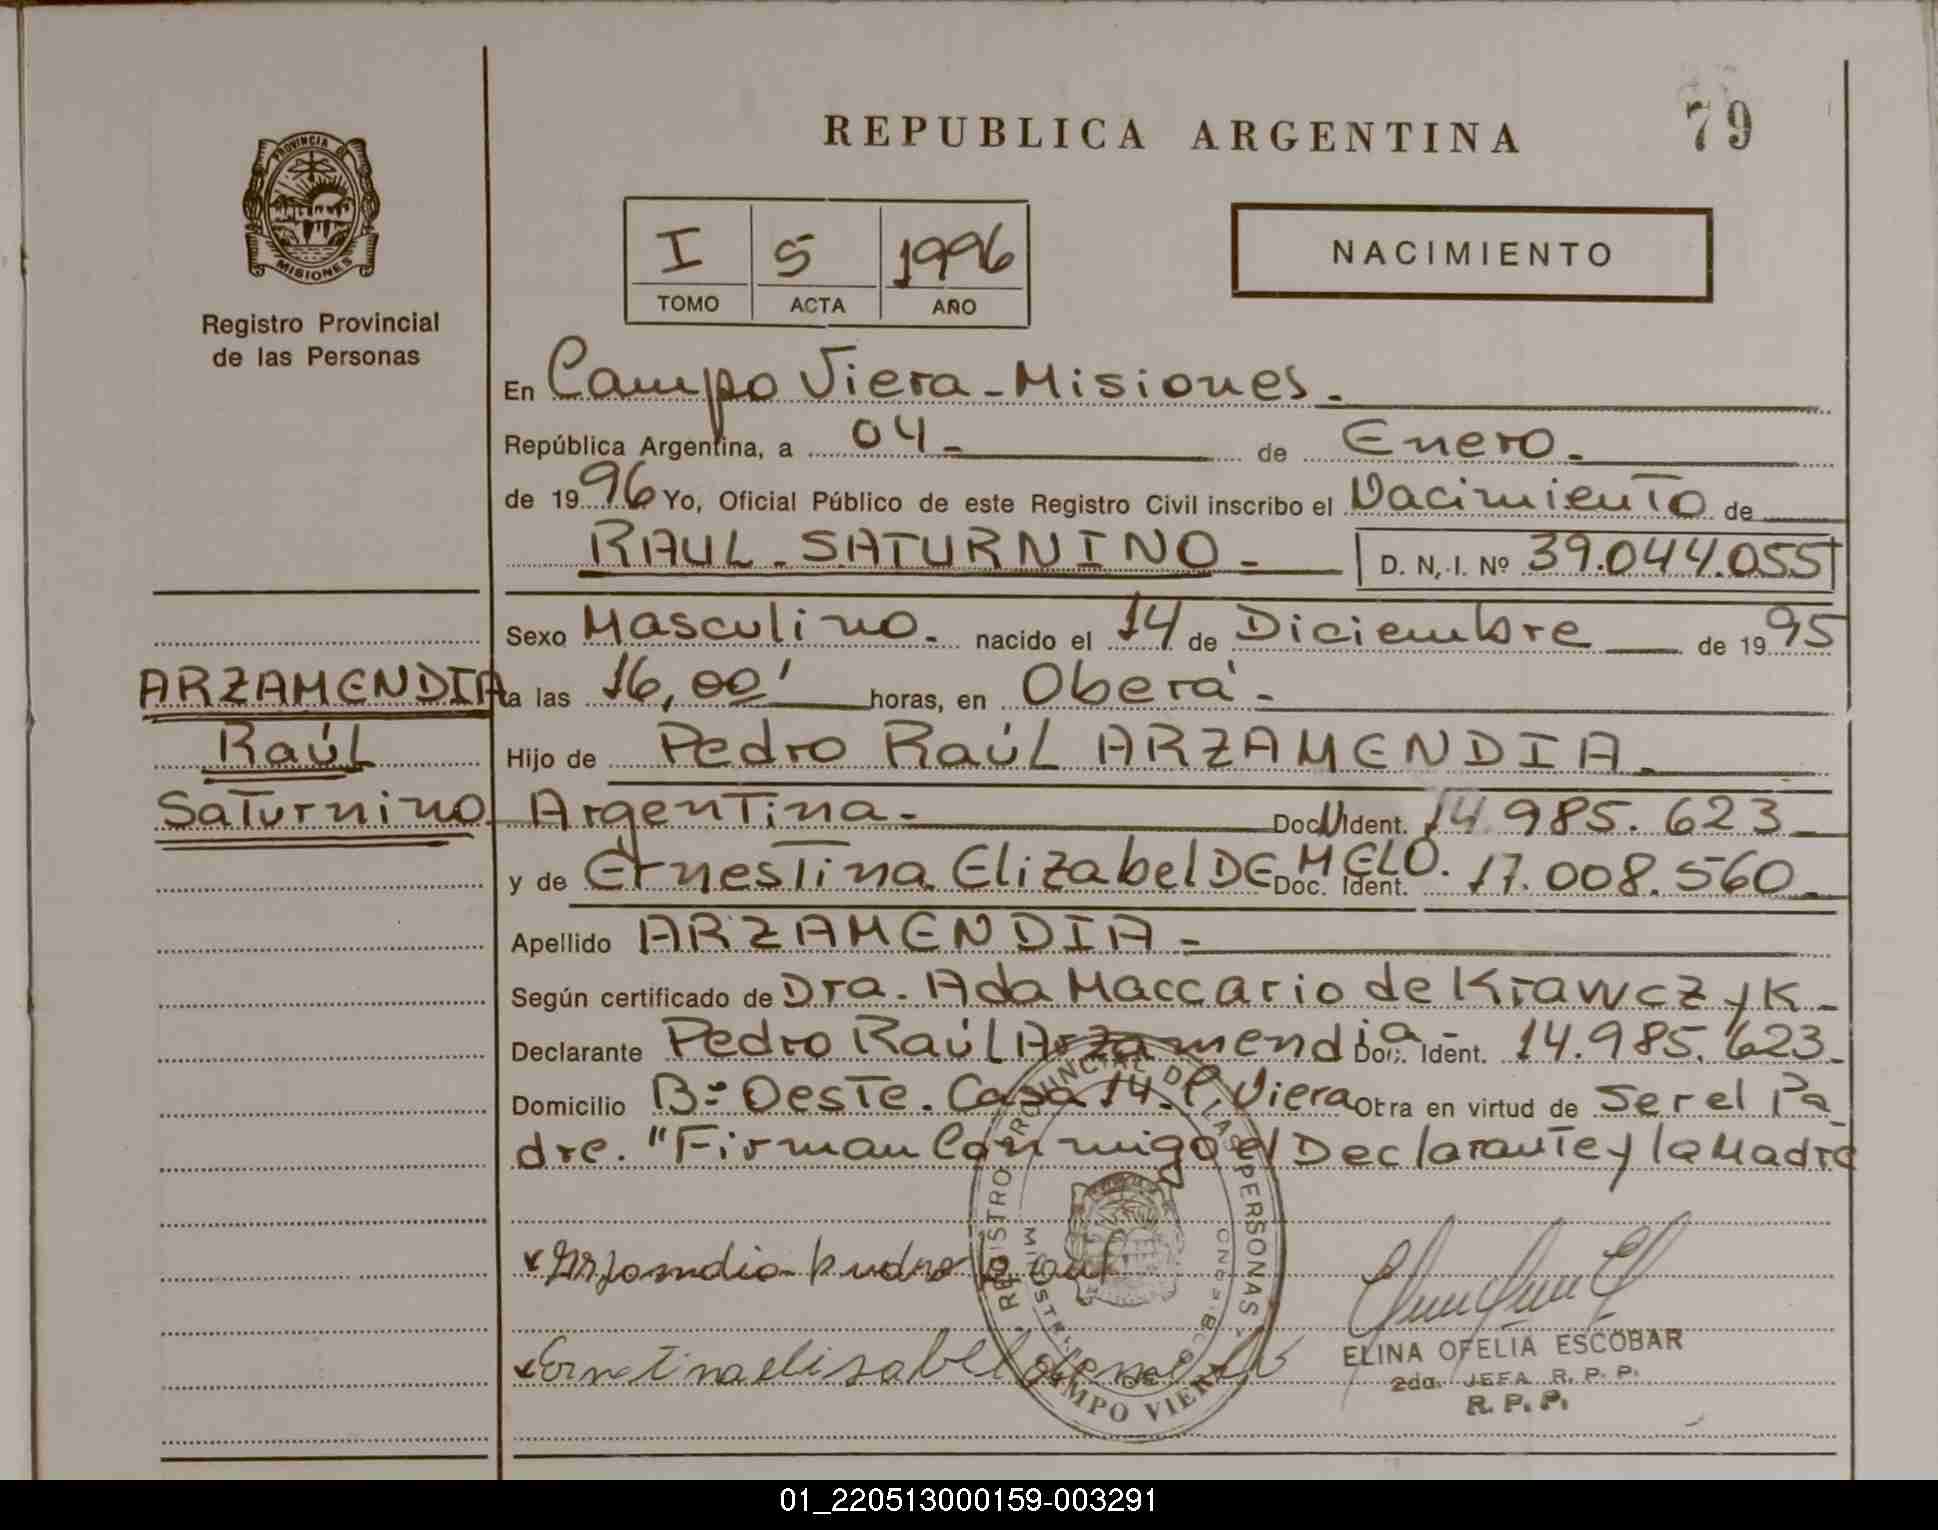 REPUBLICA ARGENTINA
79
PROVINCIA DE
MISIONES
Registro Provincial
de las Personas
I 5 1996
TOMO ACTA AÑO
NACIMIENTO
En Campo Viera - Misiones.
República Argentina, a 04 - de Enero.
de 1996 Yo, Oficial Público de este Registro Civil inscribo el Nacimiento de
RAUL - SATURNINO - D. N. I. Nº 39.044.055
Sexo Masculino. nacido el 14 de Diciembre de 1995
ARZAMENDIA
Raúl
Saturnino
a las 16,00' horas, en Oberá -
Hijo de Pedro Raúl ARZAMENDIA.
Argentina. Doc. Ident. 14.985.623
y de Ernestina Elizabel DE MELO. Doc. Ident. 17.008.560.
Apellido ARZAMENDIA -
Según certificado de Dra. Ada Maccario de Krawczyk -
Declarante Pedro Raúl Arzamendia - Doc. Ident. 14.985.623.
Domicilio Bº Oeste. Casa 14. C. Viera Obra en virtud de Ser el Pa
dre. "Firman Conmigo el Declarante y la Madre
REGISTRO PROVINCIAL DE LAS PERSONAS
CAMPO VIERA
ELINA OFELIA ESCOBAR
2da. JEFA R. P. P.
R. P. P.
01_220513000159-003291